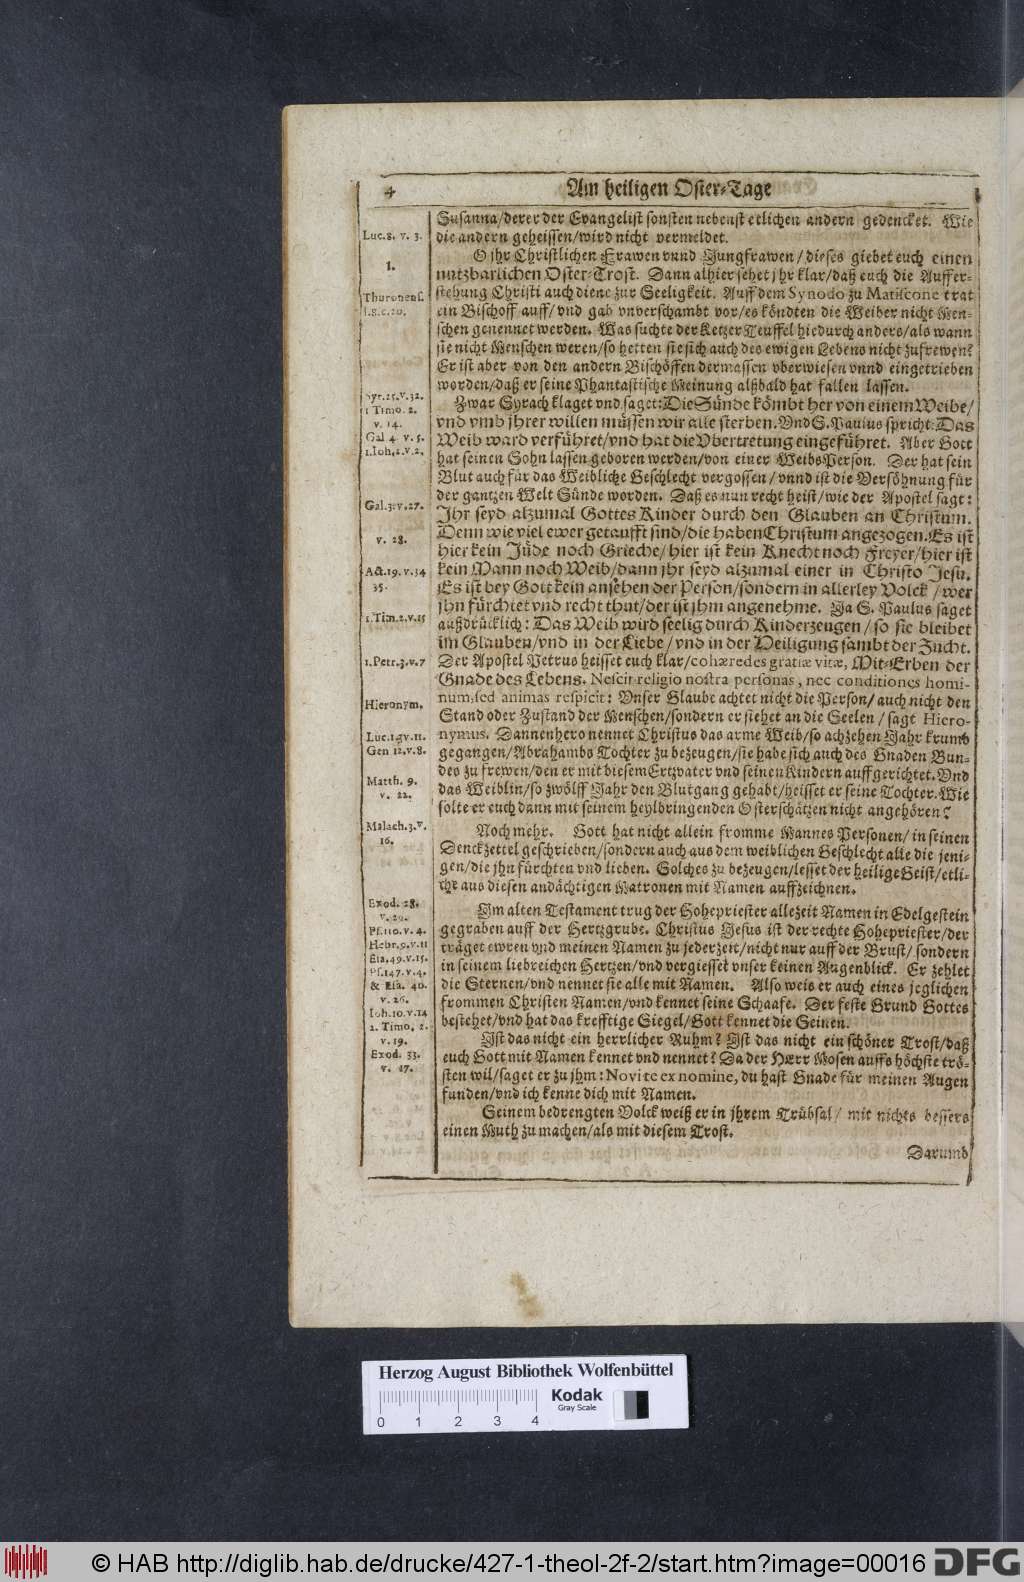 4
Am heiligen Oster-Tage
Susanna/derer der Evangelist sonsten nebenst etlichen andern gedencket. Wie
die andern geheissen/wird nicht vermeldet.
O jhr Christlichen Frawen vnnd Jungfrawen/dieses giebet euch einen
nutzbarlichen Oster-Trost. Dann alhier sehet jhr klar/daß euch die Auffer-
stehung Christi auch diene zur Seeligkeit. Auff dem Synodo zu Matiscone trat
ein Bischoff auff/vnd gab vnverschambt vor/es köndten die Weiber nicht Men-
schen genennet werden. Was suchte der Ketzer Teuffel hiedurch anders/als wann
sie nicht Menschen weren/so hetten sie sich auch des ewigen Lebens nicht zufrewen?
Er ist aber von den andern Bischöffen dermassen vberwiesen vnnd eingetrieben
worden/daß er seine Phantastische Meinung alßbald hat fallen lassen.
Zwar Syrach klaget vnd saget: Die Sünde kömbt her von einem Weibe/
vnd vmb jhrer willen müssen wir alle sterben. Vnd S. Paulus spricht: Das
Weib ward verführet/vnd hat die Vbertretung eingeführet. Aber Gott
hat seinen Sohn lassen geboren werden/von einer WeibsPerson. Der hat sein
Blut auch für das Weibliche Geschlecht vergossen/vnnd ist die Versöhnung für
der gantzen Welt Sünde worden. Daß es nun recht heist/wie der Apostel sagt:
Ihr seyd alzumal Gottes Kinder durch den Glauben an Christum.
Denn wie viel ewer getaufft sind/die haben Christum angezogen. Es ist
hier kein Jüde noch Grieche/hier ist kein Knecht noch Freyer/hier ist
kein Mann noch Weib/dann jhr seyd alzumal einer in Christo Jesu.
Es ist bey Gott kein ansehen der Person/sondern in allerley Volck/wer
jhn fürchtet vnd recht thut/der ist jhm angenehme. Ja S. Paulus saget
außdrücklich: Das Weib wird seelig durch Kinderzeugen/so sie bleibet
im Glauben/vnd in der Liebe/vnd in der Heiligung sambt der Zucht.
Der Apostel Petrus heisset euch klar/cohæredes gratiæ vitæ, Mit-Erben der
Gnade des Lebens. Nescit religio nostra personas, nec conditiones homi-
num, sed animas respicit: Vnser Glaube achtet nicht die Person/auch nicht den
Stand oder Zustand der Menschen/sondern er siehet an die Seelen/sagt Hiero-
nymus. Dannenhero nennet Christus das arme Weib/so achzehen Jahr krumb
gegangen/Abrahambs Tochter zu bezeugen/sie habe sich auch des Gnaden Bun-
des zu frewen/den er mit diesem Ertzvater vnd seinen Kindern auffgerichtet. Vnd
das Weiblin/so zwölff Jahr den Blutgang gehabt/heisset er seine Tochter. Wie
solte er euch dann mit seinem heylbringenden Osterschätzen nicht angehören?
Noch mehr. Gott hat nicht allein fromme Mannes Personen/in seinen
Denckzettel geschrieben/sondern auch aus dem weiblichen Geschlecht alle die jeni-
gen/die jhn fürchten vnd lieben. Solches zu bezeugen/lesset der heilige Geist/etli-
che aus diesen andächtigen Matronen mit Namen auffzeichnen.
Im alten Testament trug der Hohepriester allezeit Namen in Edelgestein
gegraben auff der Hertzgrube. Christus Jesus ist der rechte Hohepriester/der
träget ewren vnd meinen Namen zu jederzeit/nicht nur auff der Brust/sondern
in seinem liebreichen Hertzen/vnd vergisset vnser keinen Augenblick. Er zehlet
die Sternen/vnd nennet sie alle mit Namen. Also weis er auch eines jeglichen
frommen Christen Namen/vnd kennet seine Schaafe. Der feste Grund Gottes
bestehet/vnd hat das krefftige Siegel/Gott kennet die Seinen.
Ist das nicht ein herrlicher Ruhm? Ist das nicht ein schöner Trost/daß
euch Gott mit Namen kennet vnd nennet? Da der HErr Mosen auffs höchste trö-
sten wil/saget er zu jhm: Novi te ex nomine, du hast Gnade für meinen Augen
funden/vnd ich kenne dich mit Namen.
Seinem bedrengten Volck weiß er in jhrem Trübsal/mit nichts bessers
einen Muth zu machen/als mit diesem Trost.
Darumb
Luc. 8. v. 3.
1.
Thuronens.
l. 8. c. 20.
Syr. 25. v. 32.
1 Timo. 2.
v. 14.
Gal 4 v. 5.
1. Ioh. 2. v. 2.
Gal. 3. v. 27.
v. 28.
Act. 19. v. 34
35.
1. Tim. 2. v. 15
1. Petr. 3. v. 7
Hieronym.
Luc. 13. v. 11.
Gen 12. v. 8.
Matth. 9.
v. 22.
Malach. 3. v.
16.
Exod. 28.
v. 29.
Ps. 110. v. 4.
Hebr. 9. v. 11
Esa. 49. v. 15.
Ps. 147. v. 4.
& Esa. 40.
v. 26.
Ioh. 10. v. 14
2. Timo. 2.
v. 19.
Exod. 33.
v. 17.
Herzog August Bibliothek Wolfenbüttel
0 1 2 3 4
Kodak
Gray Scale
© HAB http://diglib.hab.de/drucke/427-1-theol-2f-2/start.htm?image=00016
DFG